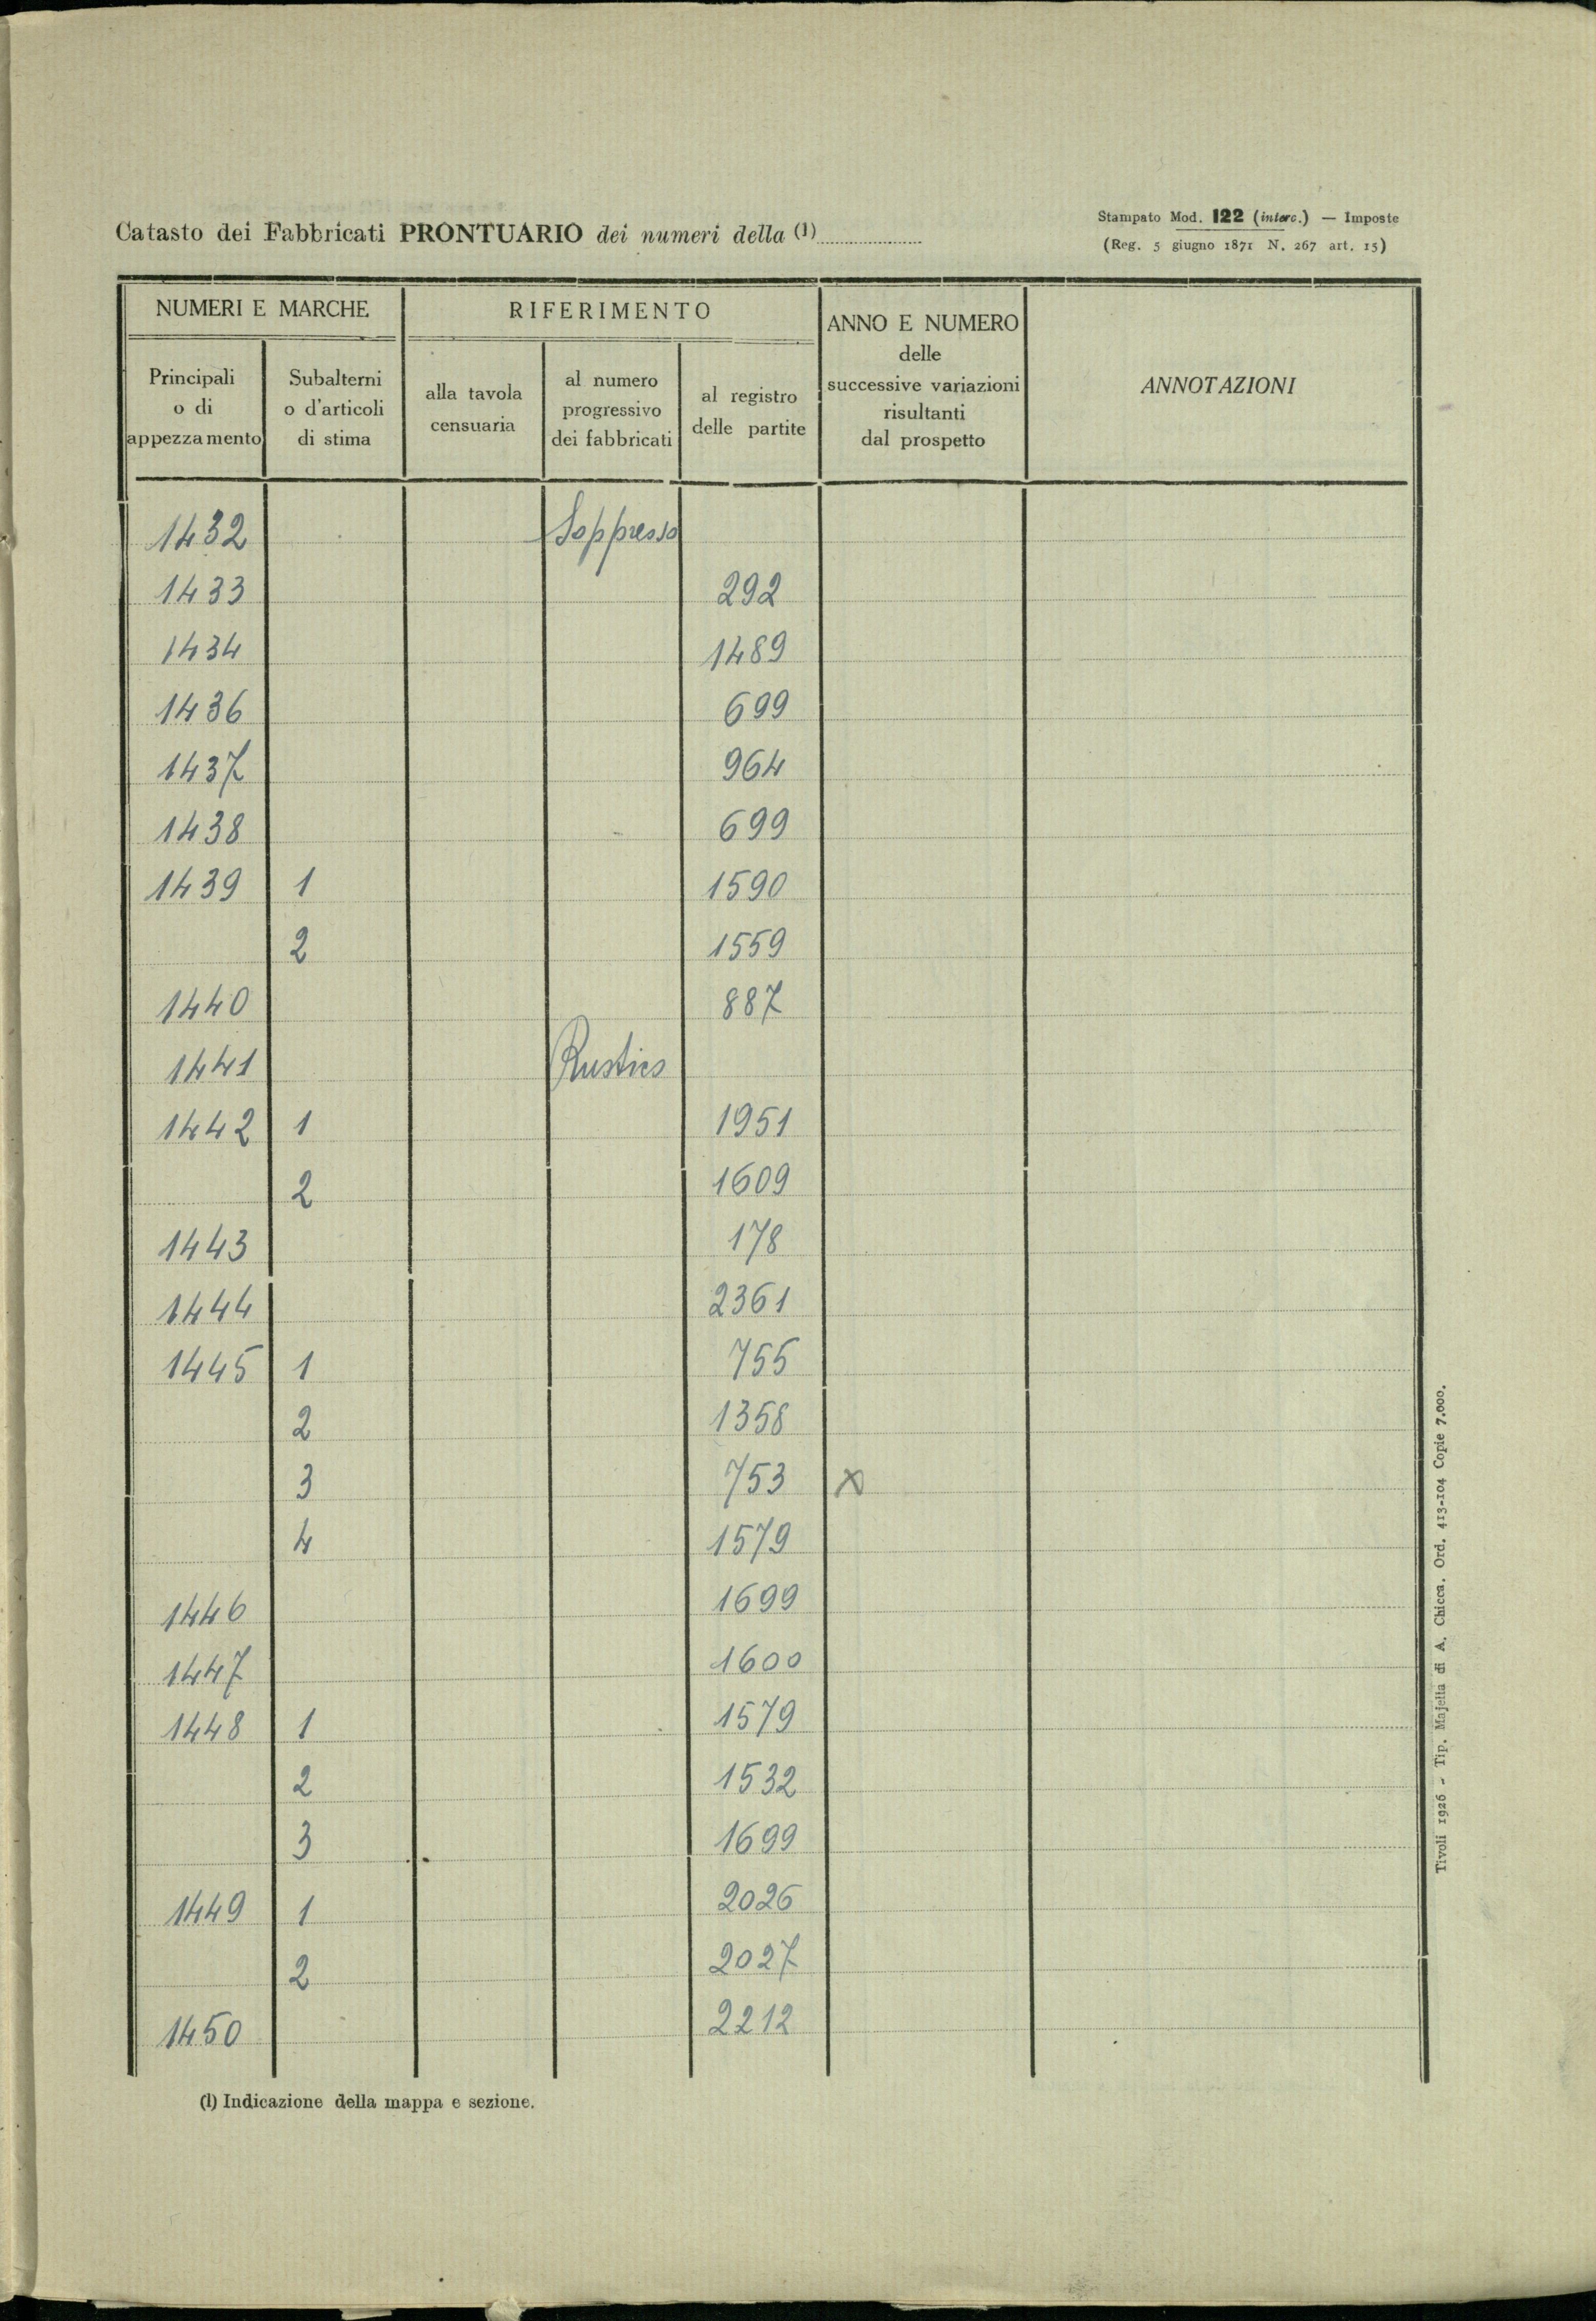 Catasto dei Fabbricati PRONTUARIO dei numeri della (1)
Stampato Mod. 122 (interc.) — Imposte
(Reg. 5 giugno 1871 N. 267 art. 15)
NUMERI E MARCHE
RIFERIMENTO
ANNO E NUMERO
delle
successive variazioni
risultanti
dal prospetto
ANNOTAZIONI
Principali
o di
appezzamento
Subalterni
o d'articoli
di stima
alla tavola
censuaria
al numero
progressivo
dei fabbricati
al registro
delle partite
1432 Soppresso
1433 292
1434 1489
1436 699
1437 964
1438 699
1439 1 1590
2 1559
1440 887
1441 Rustico
1442 1 1951
2 1609
1443 178
1444 2361
1445 1 755
2 1358
3 753 x
4 1579
1446 1699
1447 1600
1448 1 1579
2 1532
3 1699
1449 1 2026
2 2027
1450 2212
(1) Indicazione della mappa e sezione.
Tivoli 1926 - Tip. Majella di A. Chicca. Ord. 413-104 Copie 7.000.